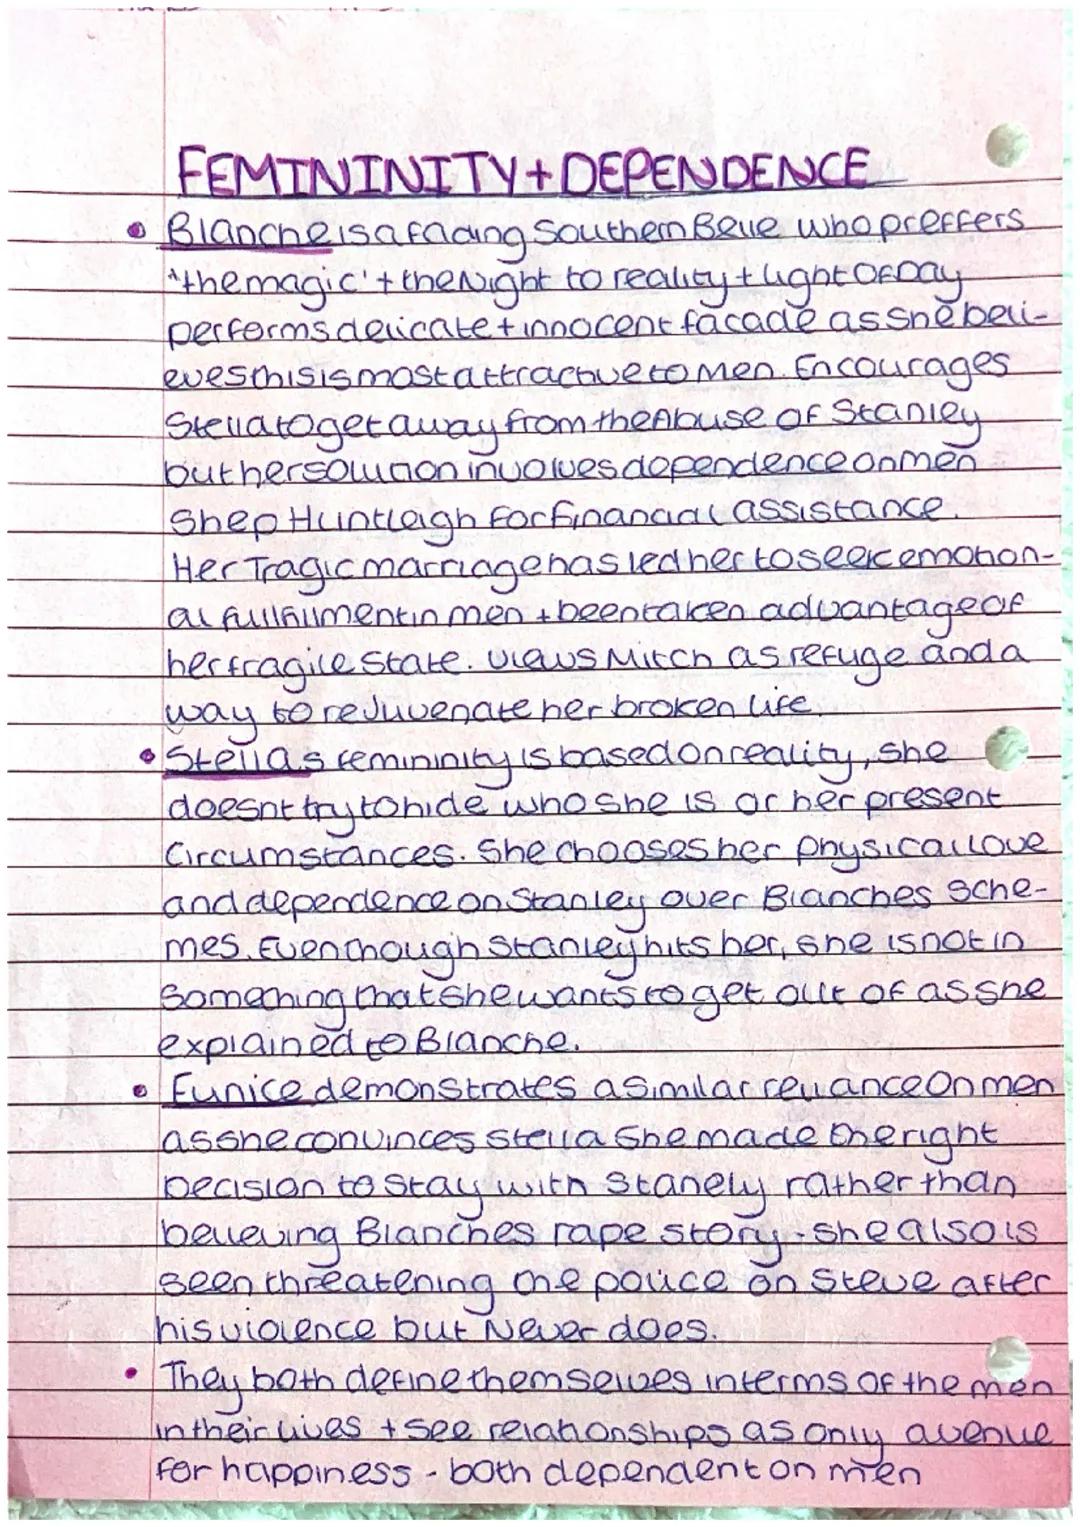 FEMININITY + DEPENDENCE
• Blanche is a fading Southern Belle who preffers
"the magic' + the Night to reality + Light OF Day
performs delicate + innocent facade as she beli-
eves this is most attractive to Men. Encourages
Stella to get away from the Abuse of Stanley
but her solution involves dependence on men
Shep Huntleigh for financial assistance.
Her Tragic marriage has led her to seek emotion-
al fullfilment in men + been taken advantage of
her fragile state. Views Mitch as refuge and a
way to rejuvenate her broken life.
• Stella's femininity is based on reality, she
doesnt try to hide who she is or her present
Circumstances. She chooses her physical love
and dependence on Stanley over Blanches sche-
mes. Even though Stanley hits her, she is not in
something that she wants to get out of as she
explained to Blanche.
• Eunice demonstrates a similar reliance on men
as she convinces Stella she made the right
Decision to stay with Stanely rather than
believing Blanches rape story. She also is
seen threatening the police on Steve after
his violence but Never does.
• They both define themselves in terms of the men
in their lives + see relationships as only avenue
for happiness - both dependent on men